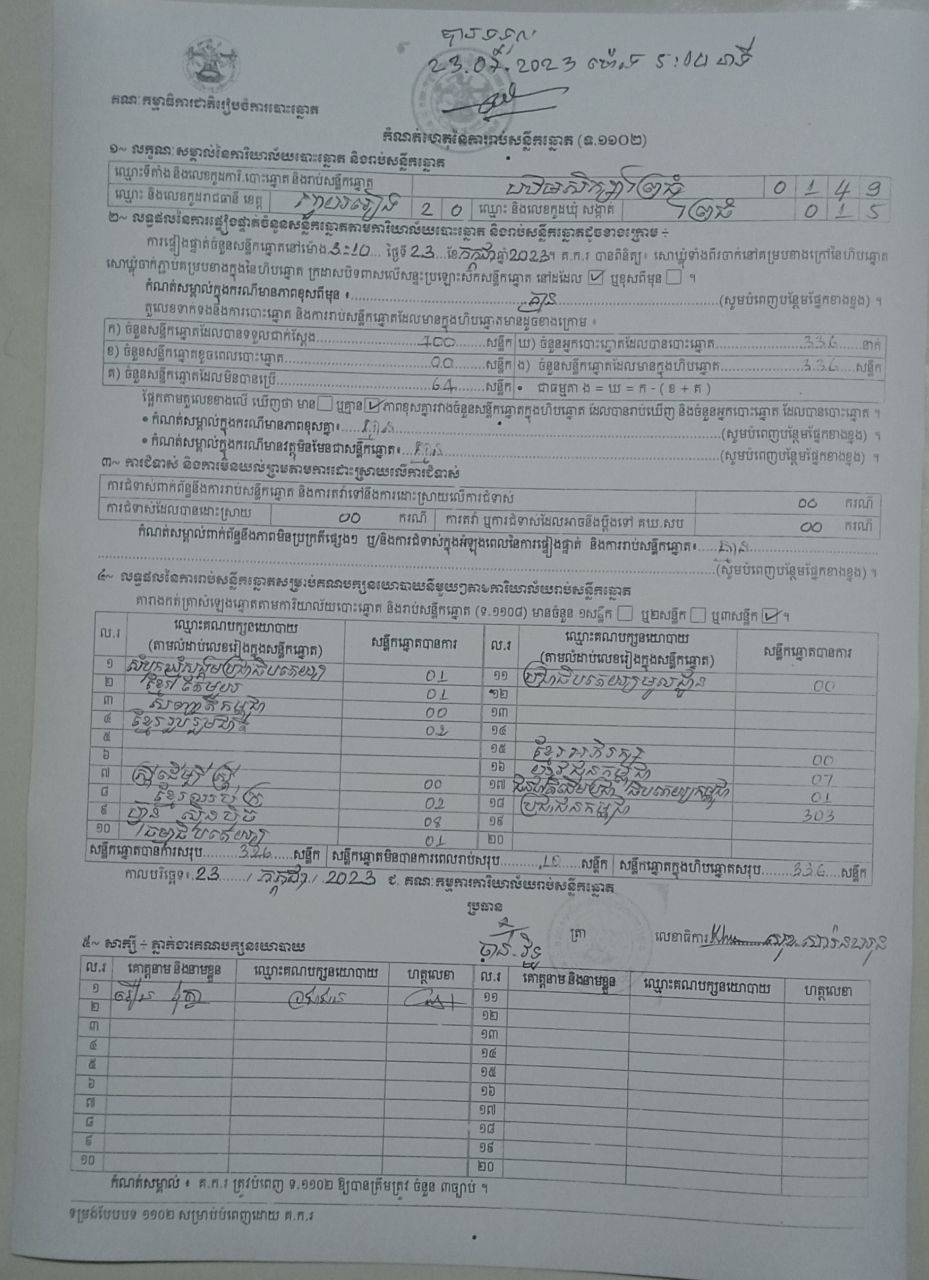 បានទទួល
23.07.2023 ម៉ោង 5:04 នាទី
គណៈកម្មាធិការជាតិរៀបចំការបោះឆ្នោត
កំណត់ហេតុនៃការរាប់សន្លឹកឆ្នោត (ទ.១១០២)
១~ លក្ខណៈសម្គាល់នៃការិយាល័យបោះឆ្នោត និងរាប់សន្លឹកឆ្នោត
ឈ្មោះទីតាំង និងលេខកូដការិ.បោះឆ្នោត និងរាប់សន្លឹកឆ្នោត 0 1 4 9
ឈ្មោះ និងលេខកូដរាជធានី ខេត្ត ស្វាយរៀង 2 0 ឈ្មោះ និងលេខកូដឃុំ សង្កាត់ 0 1 5
២~ លទ្ធផលនៃការផ្ទៀងផ្ទាត់ចំនួនសន្លឹកឆ្នោតតាមការិយាល័យបោះឆ្នោត និងរាប់សន្លឹកឆ្នោតដូចខាងក្រោម ÷
ការផ្ទៀងផ្ទាត់ចំនួនសន្លឹកឆ្នោតនៅម៉ោង 3:10 ថ្ងៃទី 23 ខែ កក្កដា ឆ្នាំ 2023។ គ.ក.រ បានពិនិត្យ៖ សោឃ្លុំទាំងពីរចាក់នៅគម្របខាងក្រៅនៃហិបឆ្នោត
សោឃ្លុំចាក់ភ្ជាប់គម្របខាងក្នុងនៃហិបឆ្នោត ក្រដាសបិទពាសលើសន្ទះប្រឡោះស៊កសន្លឹកឆ្នោត នៅដដែល ☑ ឬខុសពីមុន ☐ ។
កំណត់សម្គាល់ក្នុងករណីមានភាពខុសពីមុន ៖ គ្មាន (សូមបំពេញបន្ថែមផ្នែកខាងខ្នង) ។
តួលេខទាក់ទងនឹងការបោះឆ្នោត និងការរាប់សន្លឹកឆ្នោតដែលមានក្នុងហិបឆ្នោតមានដូចខាងក្រោម ៖
ក) ចំនួនសន្លឹកឆ្នោតដែលបានទទួលជាក់ស្តែង 400 សន្លឹក ឃ) ចំនួនអ្នកបោះឆ្នោតដែលបានបោះឆ្នោត 336 នាក់
ខ) ចំនួនសន្លឹកឆ្នោតខូចពេលបោះឆ្នោត 00 សន្លឹក ង) ចំនួនសន្លឹកឆ្នោតដែលមានក្នុងហិបឆ្នោត 336 សន្លឹក
គ) ចំនួនសន្លឹកឆ្នោតដែលមិនបានប្រើ 64 សន្លឹក • ជាធម្មតា ង = ឃ = ក - ( ខ + គ )
ផ្អែកតាមតួលេខខាងលើ ឃើញថា មាន ☐ ឬគ្មាន ☑ ភាពខុសគ្នារវាងចំនួនសន្លឹកឆ្នោតក្នុងហិបឆ្នោត ដែលបានរាប់ឃើញ និងចំនួនអ្នកបោះឆ្នោត ដែលបានបោះឆ្នោត ។
• កំណត់សម្គាល់ក្នុងករណីមានភាពខុសគ្នា៖ គ្មាន (សូមបំពេញបន្ថែមផ្នែកខាងខ្នង) ។
• កំណត់សម្គាល់ក្នុងករណីមានវត្ថុមិនមែនជាសន្លឹកឆ្នោត៖ គ្មាន (សូមបំពេញបន្ថែមផ្នែកខាងខ្នង) ។
៣~ ការជំទាស់ និងការមិនយល់ព្រមតាមការដោះស្រាយលើការជំទាស់
ការជំទាស់ពាក់ព័ន្ធនឹងការរាប់សន្លឹកឆ្នោត និងការតវ៉ាទៅនឹងការដោះស្រាយលើការជំទាស់ 00 ករណី
ការជំទាស់ដែលបានដោះស្រាយ 00 ករណី ការតវ៉ា ឬការជំទាស់ដែលអាចនឹងប្តឹងទៅ គឃ.សប 00 ករណី
កំណត់សម្គាល់ពាក់ព័ន្ធនឹងភាពមិនប្រក្រតីផ្សេងៗ ឬ/និងការជំទាស់ក្នុងអំឡុងពេលនៃការផ្ទៀងផ្ទាត់ និងការរាប់សន្លឹកឆ្នោត៖ គ្មាន
(សូមបំពេញបន្ថែមផ្នែកខាងខ្នង) ។
៤~ លទ្ធផលនៃការរាប់សន្លឹកឆ្នោតសម្រាប់គណបក្សនយោបាយនីមួយៗតាមការិយាល័យរាប់សន្លឹកឆ្នោត
តារាងកត់ត្រាសំឡេងឆ្នោតតាមការិយាល័យបោះឆ្នោត និងរាប់សន្លឹកឆ្នោត (ទ.១១០៨) មានចំនួន ១សន្លឹក ☐ ឬ២សន្លឹក ☐ ឬ៣សន្លឹក ☑ ។
ល.រ ឈ្មោះគណបក្សនយោបាយ (តាមលំដាប់លេខរៀងក្នុងសន្លឹកឆ្នោត) សន្លឹកឆ្នោតបានការ ល.រ ឈ្មោះគណបក្សនយោបាយ (តាមលំដាប់លេខរៀងក្នុងសន្លឹកឆ្នោត) សន្លឹកឆ្នោតបានការ
១ សំបុកឃ្មុំសង្គមប្រជាធិបតេយ្យ 01 ១១ ប្រជាធិបតេយ្យមូលដ្ឋាន 00
២ ខ្មែរតែមួយ 01 ១២
៣ សញ្ជាតិកម្ពុជា 00 ១៣
៤ ខ្មែររួបរួមជាតិ 02 ១៤
៥ ១៥ ខ្មែរអភិរក្ស 00
៦ ១៦ យុវជនកម្ពុជា 07
៧ ស្ត្រីដើម្បីស្ត្រី 00 ១៧ ជនជាតិដើមប្រជាធិបតេយ្យកម្ពុជា 01
៨ ខ្មែរឈប់ក្រ 02 ១៨ ប្រជាជនកម្ពុជា 303
៩ ហ្វ៊ុនស៊ិនប៉ិច 08 ១៩
១០ ធម្មាធិបតេយ្យ 01 ២០
សន្លឹកឆ្នោតបានការសរុប 326 សន្លឹក សន្លឹកឆ្នោតមិនបានការពេលរាប់សរុប 10 សន្លឹក សន្លឹកឆ្នោតក្នុងហិបឆ្នោតសរុប 336 សន្លឹក
កាលបរិច្ឆេទ៖ 23 / កក្កដា / 2023 ជ. គណៈកម្មការការិយាល័យរាប់សន្លឹកឆ្នោត
ប្រធាន
ត្រា លេខាធិការ
៥~ សាក្សី ÷ ភ្នាក់ងារគណបក្សនយោបាយ
ល.រ គោត្តនាម និងនាមខ្លួន ឈ្មោះគណបក្សនយោបាយ ហត្ថលេខា ល.រ គោត្តនាម និងនាមខ្លួន ឈ្មោះគណបក្សនយោបាយ ហត្ថលេខា
១ ១១
២ ១២
៣ ១៣
៤ ១៤
៥ ១៥
៦ ១៦
៧ ១៧
៨ ១៨
៩ ១៩
១០ ២០
កំណត់សម្គាល់ ៖ គ.ក.រ ត្រូវបំពេញ ទ.១១០២ ឱ្យបានត្រឹមត្រូវ ចំនួន ៣ច្បាប់ ។
ទម្រង់បែបបទ ១១០២ សម្រាប់បំពេញដោយ គ.ក.រ